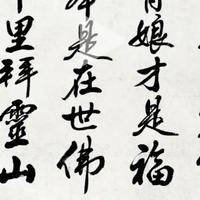 娘才是福
是在世佛
里拜靈山